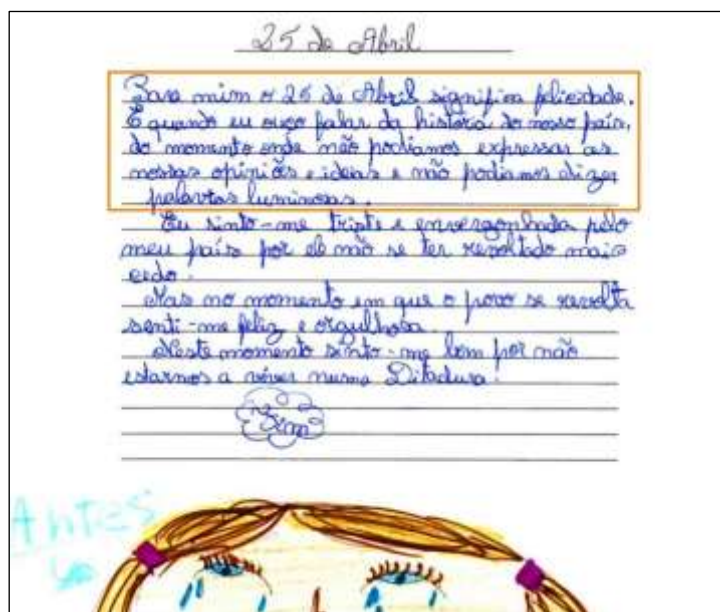 25 de Abril
Para mim o 25 de Abril significa felicidade.
E quando eu ouço falar da história do nosso país,
do momento onde não podíamos expressar as
nossas opiniões e ideias e não podíamos dizer
palavras luminosas.
Eu sinto-me triste e envergonhada pelo
meu país por ele não se ter revoltado mais
cedo.
Mas no momento em que o povo se revolta
senti-me feliz e orgulhosa.
Neste momento sinto-me bem por não
estarmos a viver numa Ditadura.
Fim
Antes